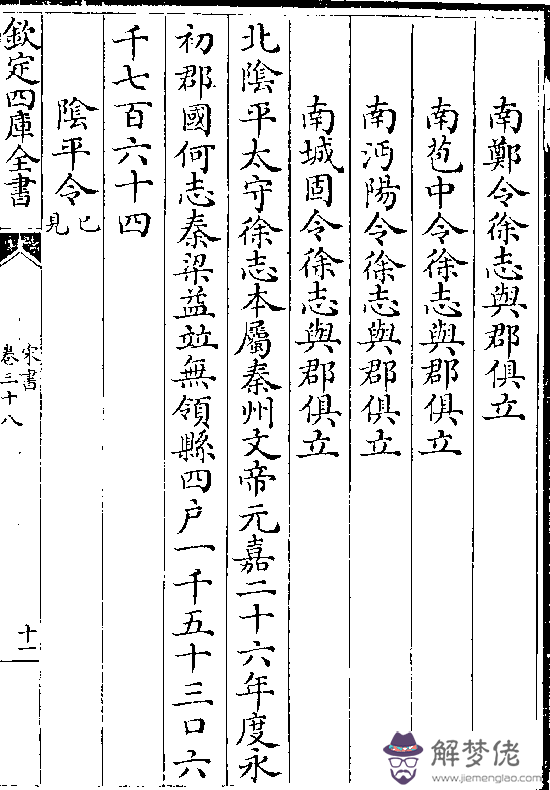 南鄭令徐志與郡俱立
南苞中令徐志與郡俱立
南沔陽令徐志與郡俱立
南城固令徐志與郡俱立
北隂平太守徐志本屬秦州文帝元嘉二十六年度永
初郡國何志秦梁益竝無領縣四户一千五十三口六
千七百六十四
隂平令已見
欽定四庫全書
宋書
卷三十八
十一
解梦佬
www.jiemenglao.com